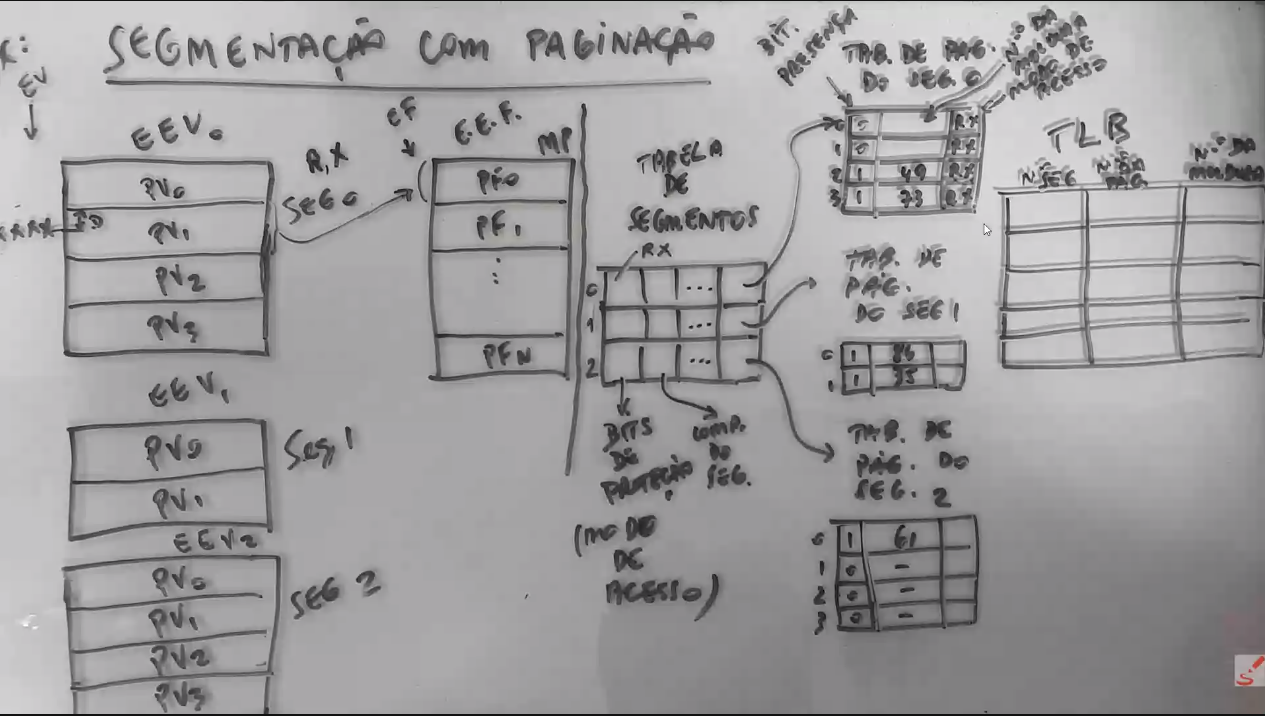 SEGMENTAÇÃO COM PAGINAÇÃO
EV
EEV0
PV0
PV1
PV2
PV3
R,X
SEG 0
EEV1
PV0
PV1
SEG 1
EEV2
PV0
PV1
PV2
PV3
SEG 2
EF
E.E.F.
MP
PF0
PF1
⋮
PFN
TABELA
DE
SEGMENTOS
RX
0 ...
1 ...
2 ...
BITS
DE
PROTEÇÃO
(MODO
DE
ACESSO)
COMP.
DO
SEG.
BIT.
PRESENÇA
TAB. DE PÁG.
DO SEG. 0
Nº DA
MODO DE
ACESSO
0 0 RX
1 0 RX
2 1 49 RX
3 1 73 RX
TAB. DE
PÁG.
DO SEG 1
0 1 86
1 1 35
TAB. DE
PÁG. DO
SEG. 2
0 1 61
1 0 -
2 0 -
3 0 -
TLB
Nº SEG
Nº DA PÁG
Nº DA MOLDURA